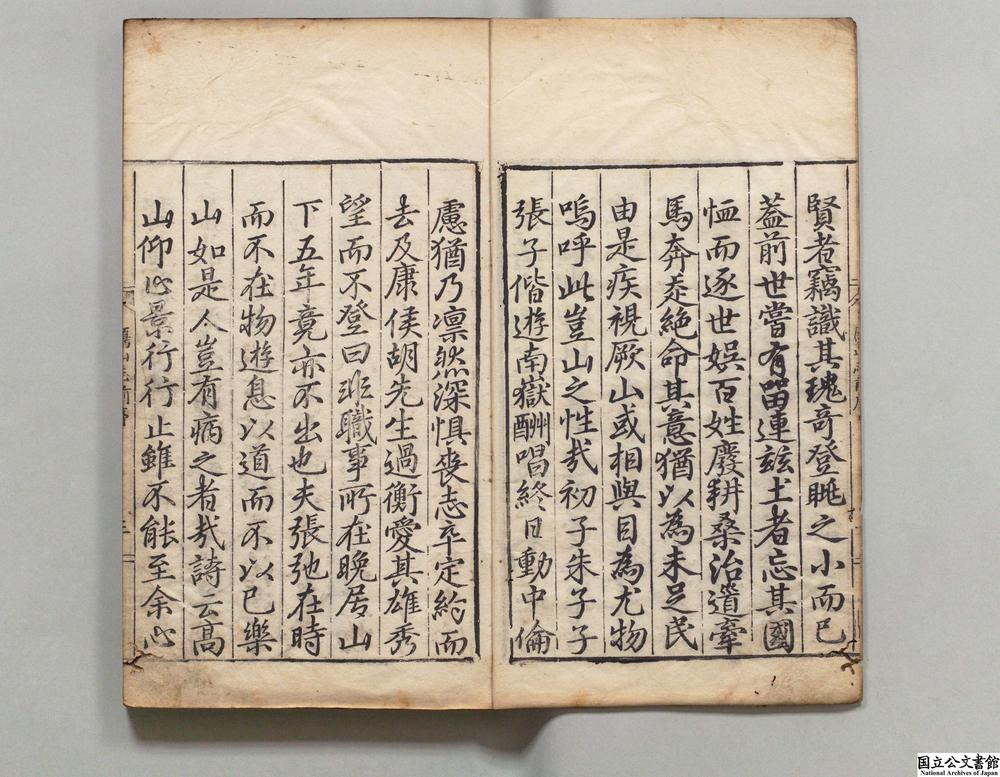 賢者竊識其瑰奇登眺之小而已
蓋前世嘗有留連茲土者忘其國
恤而逐世娛百姓廢耕桑治道牽
馬奔走絕命其意猶以為未足民
由是疾視厥山或相與目為尤物
嗚呼此豈山之性哉初子朱子子
張子偕遊南嶽酬唱終日動中倫
慮猶乃凛然深惧喪志卒定約而
去及康侯胡先生過衡愛其雄秀
望而不登曰非職事所在晚居山
下五年竟亦不出也夫張弛在時
而不在物遊息以道而不以已樂
山如是人豈有病之者哉詩云高
山仰止景行行止雖不能至余心
国立公文書館
National Archives of Japan